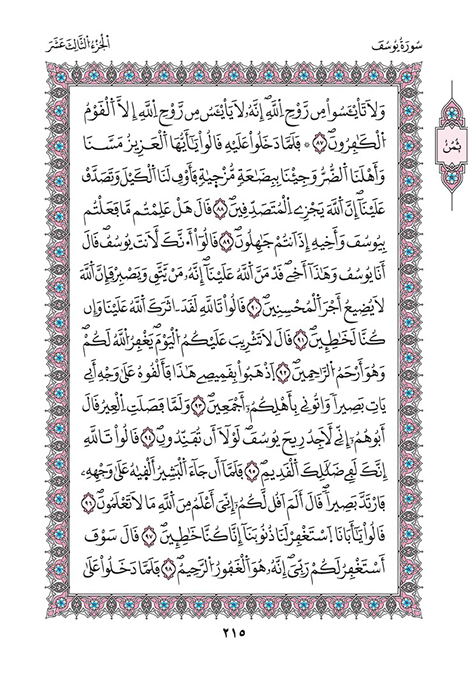 سُورَةُ يُوسُفَ
الجُزْءُ الثَّالِثَ عَشَرَ
وَلَا تَاْيْـَٔسُواْ مِن رَّوْحِ اِللَّهِۖ إِنَّهُۥ لَا يَاْيْـَٔسُ مِن رَّوْحِ اِللَّهِ إِلَّا اَلْقَوْمُ
اُلْكَٰفِرُونَۖ ٨٧ ۞ فَلَمَّا دَخَلُواْ عَلَيْهِ قَالُواْ يَٰٓأَيُّهَا اَلْعَزِيزُ مَسَّنَا
وَأَهْلَنَا اَلضُّرُّ وَجِئْنَا بِبِضَٰعَةٖ مُّزْجَيٰةٖ فَأَوْفِ لَنَا اَلْكَيْلَ وَتَصَدَّقْ
عَلَيْنَآۖ إِنَّ اَللَّهَ يَجْزِے اِلْمُتَصَدِّقِينَۖ ٨٨ قَالَ هَلْ عَلِمْتُم مَّا فَعَلْتُم
بِيُوسُفَ وَأَخِيهِ إِذَ اَنتُمْ جَٰهِلُونَۖ ٨٩ قَالُوٓاْ أَٰ۟نَّكَ لَأَنتَ يُوسُفُۖ قَالَ
أَنَا يُوسُفُ وَهَٰذَآ أَخِےۖ قَد مَّنَّ اَللَّهُ عَلَيْنَآۖ إِنَّهُۥ مَنْ يَّتَّقِ وَيَصْبِرْ فَإِنَّ اَللَّهَ
لَا يُضِيعُ أَجْرَ اَلْمُحْسِنِينَۖ ٩٠ قَالُواْ تَاللَّهِ لَقَدَ اٰثَرَكَ اَللَّهُ عَلَيْنَا وَإِن
كُنَّا لَخَٰطِـِٕينَۖ ٩١ قَالَ لَا تَثْرِيبَ عَلَيْكُمُ اُلْيَوْمَۖ يَغْفِرُ اُللَّهُ لَكُمْۖ
وَهُوَ أَرْحَمُ اُلرَّٰحِمِينَۖ ٩٢ اَ۪ذْهَبُواْ بِقَمِيصِے هَٰذَا فَأَلْقُوهُ عَلَىٰ وَجْهِ أَبِے
يَاتِ بَصِيراٗۖ وَاتُونِے بِأَهْلِكُمُۥٓ أَجْمَعِينَۖ ٩٣ وَلَمَّا فَصَلَتِ اِلْعِيرُ قَالَ
أَبُوهُمُۥٓ إِنِّے لَأَجِدُ رِيحَ يُوسُفَ لَوْلَآ أَن تُفَنِّدُونِۖ ٩٤ قَالُواْ تَاللَّهِ
إِنَّكَ لَفِے ضَلَٰلِكَ اَلْقَدِيمِۖ ٩٥ فَلَمَّآ أَن جَآءَ اَلْبَشِيرُ أَلْقَيٰهُ عَلَىٰ وَجْهِهِۦ
فَارْتَدَّ بَصِيراٗۖ قَالَ أَلَمَ اَقُل لَّكُمُۥٓ إِنِّيَ أَعْلَمُ مِنَ اَللَّهِ مَا لَا تَعْلَمُونَۖ ٩٦
قَالُواْ يَٰٓأَبَانَا اَ۪سْتَغْفِرْ لَنَا ذُنُوبَنَآ إِنَّا كُنَّا خَٰطِـِٕينَۖ ٩٧ قَالَ سَوْفَ
أَسْتَغْفِرُ لَكُمْ رَبِّيَۖ إِنَّهُۥ هُوَ اَلْغَفُورُ اُلرَّحِيمُۖ ٩٨ فَلَمَّا دَخَلُواْ عَلَىٰ
ثُمُنْ
٢١٥